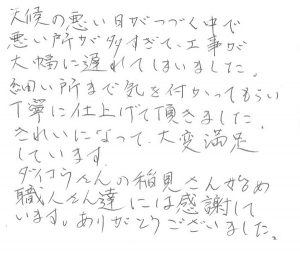 天候の悪い日がつづく中で
悪い所が多すぎて、工事が
大幅に遅れてしまいました。
細い所まで気を付かってもらい
丁寧に仕上げて頂きました。
きれいになって、大変満足
しています。
ダイコウさんの稲見さん始め
職人さん達には感謝して
います。ありがとうございました。